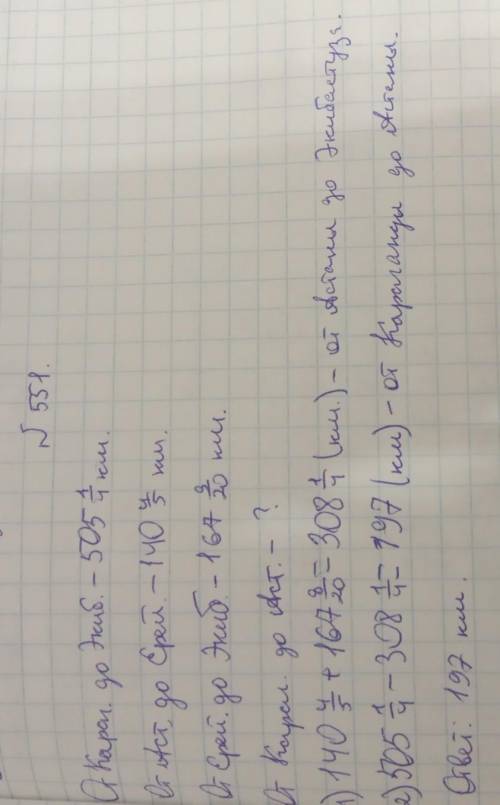 № 551.
От Караг. до Экиб. – 505 1/4 км.
От Аст. до Ерей. – 140 4/5 км.
От Ерей. до Экиб. – 167 9/20 км.
От Караг. до Аст. – ?
1) 140 4/5 + 167 9/20 = 308 1/4 (км.) – от Астаны до Экибастуза.
2) 505 1/4 – 308 1/4 = 197 (км) – от Караганды до Астаны.
Ответ: 197 км.